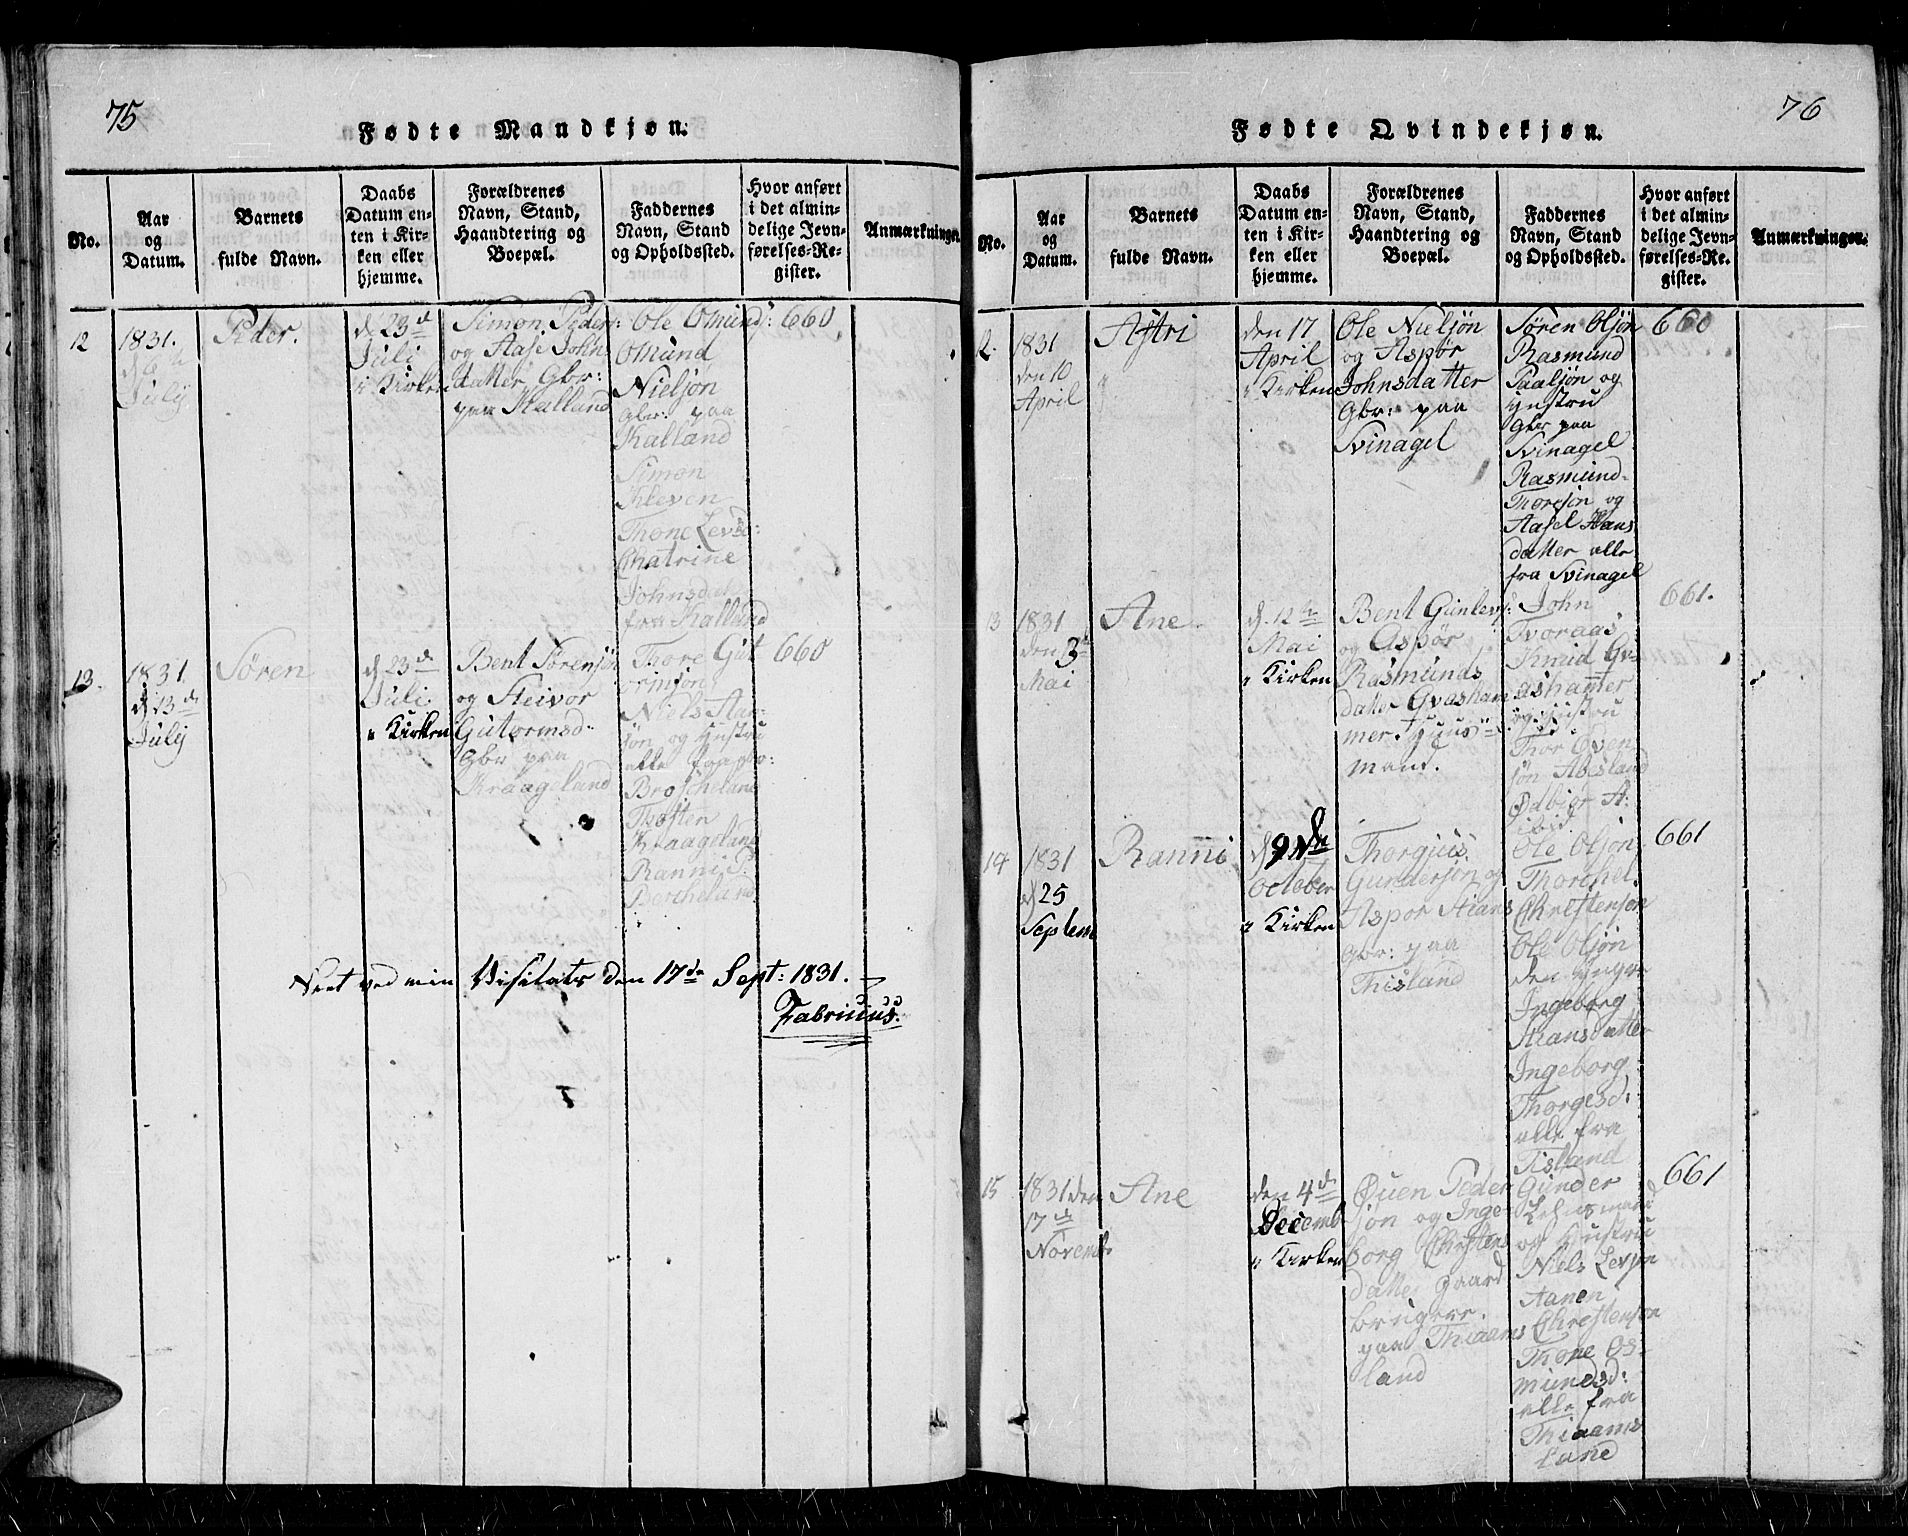 75
Fødte Mandkjøn.
No.
Aar
og
Datum.
Barnets
fulde Navn.
Daabs
Datum en-
ten i Kir-
ken eller
hjemme.
Forældrenes
Navn, Stand,
Haandtering og
Boepæl.
Faddernes
Navn, Stand
og Opholdssted.
Hvor anført
i det almin-
delige Jevn-
førelses-Re-
gister.
Anmærkninger.
12
1831.
July
Peder.
d 23d
Juli
i Kirken
Simon Peders:
og Aase Johns
datter Gbr:
paa Kalland
Ole Omunds:
Omund
Nielsøn
Gbr: paa
Kalland
Simon
Kleven
Thone Levsd:
Chatrine
Johnsdat
fra Kalland
660
13.
1831.
d 13de
July
Søren
d 23de
Juli
i Kirken
Bent Sørensøn
og Steivor
Gutormsd:
Gbr paa
Kraageland
Thore Gut
ormsøn
Niels
søn og Hustru
alle
Broscheland
Thosten
Kraageland
Ranni P:
Bercheland
660
Seet ved min Visitats den 17de Sept: 1831.
Fabricius.
76
Fødte Qvindekjøn.
No.
Aar
og
Datum.
Barnets
fulde Navn.
Daabs
Datum en-
ten i Kir-
ken eller
hjemme.
Forældrenes
Navn, Stand,
Haandtering og
Boepæl.
Faddernes
Navn, Stand
og Opholdssted.
Hvor anført
i det almin-
delige Jevn-
førelses-Re-
gister.
Anmærkninger.
12.
1831
den 10
April
Astri
den 17
April
i Kirken
Ole Nielsøn
og Aspør
Johnsdatter
Gbr: paa
Svinagel
Søren Olsøn
Rasmund
Paalsøn og
Hustru
Gbr paa
Svinagel
Rasmund
Thoresøn og
Aasel Hans
datter alle
fra Svinagel
660
13
1831
den 3de
Mai
Ane
d. 12te
Mai
i Kirken
Bent Gunlevs:
og Aspør
Rasmunds
datter Gvasham
mer. Huus
mand.
John
Tvoraas
Gv-
ashammer
og Hustru
Thor Øven
søn Abesland
Ødbiør A:
ibid
661.
14
1831
d 25
Septem
Ranni
d 9de
October
i Kirken
Thorgius
Gundersøn og
Aspor Hans
Gbr: paa
Thisland
Ole Olsøn
Thorchel
Christensøn
Ole Olsøn
den Yngre
Ingeborg
Hansdatter
Ingeborg
Thorgesd:
alle fra
Tisland
661
15
1831 den
17de
Novemb
Ane
den 4de
Decemb
i Kirken
Øuen Peder
søn og Inge-
borg Christens
datter gaard
brugere
paa Thiams
land
Gunder
Lehnsmand
og Hustru
Niels Levsøn
Aanen
Christensøn
Thone Os-
mundsd:
alle fra
Thiaams
land
661